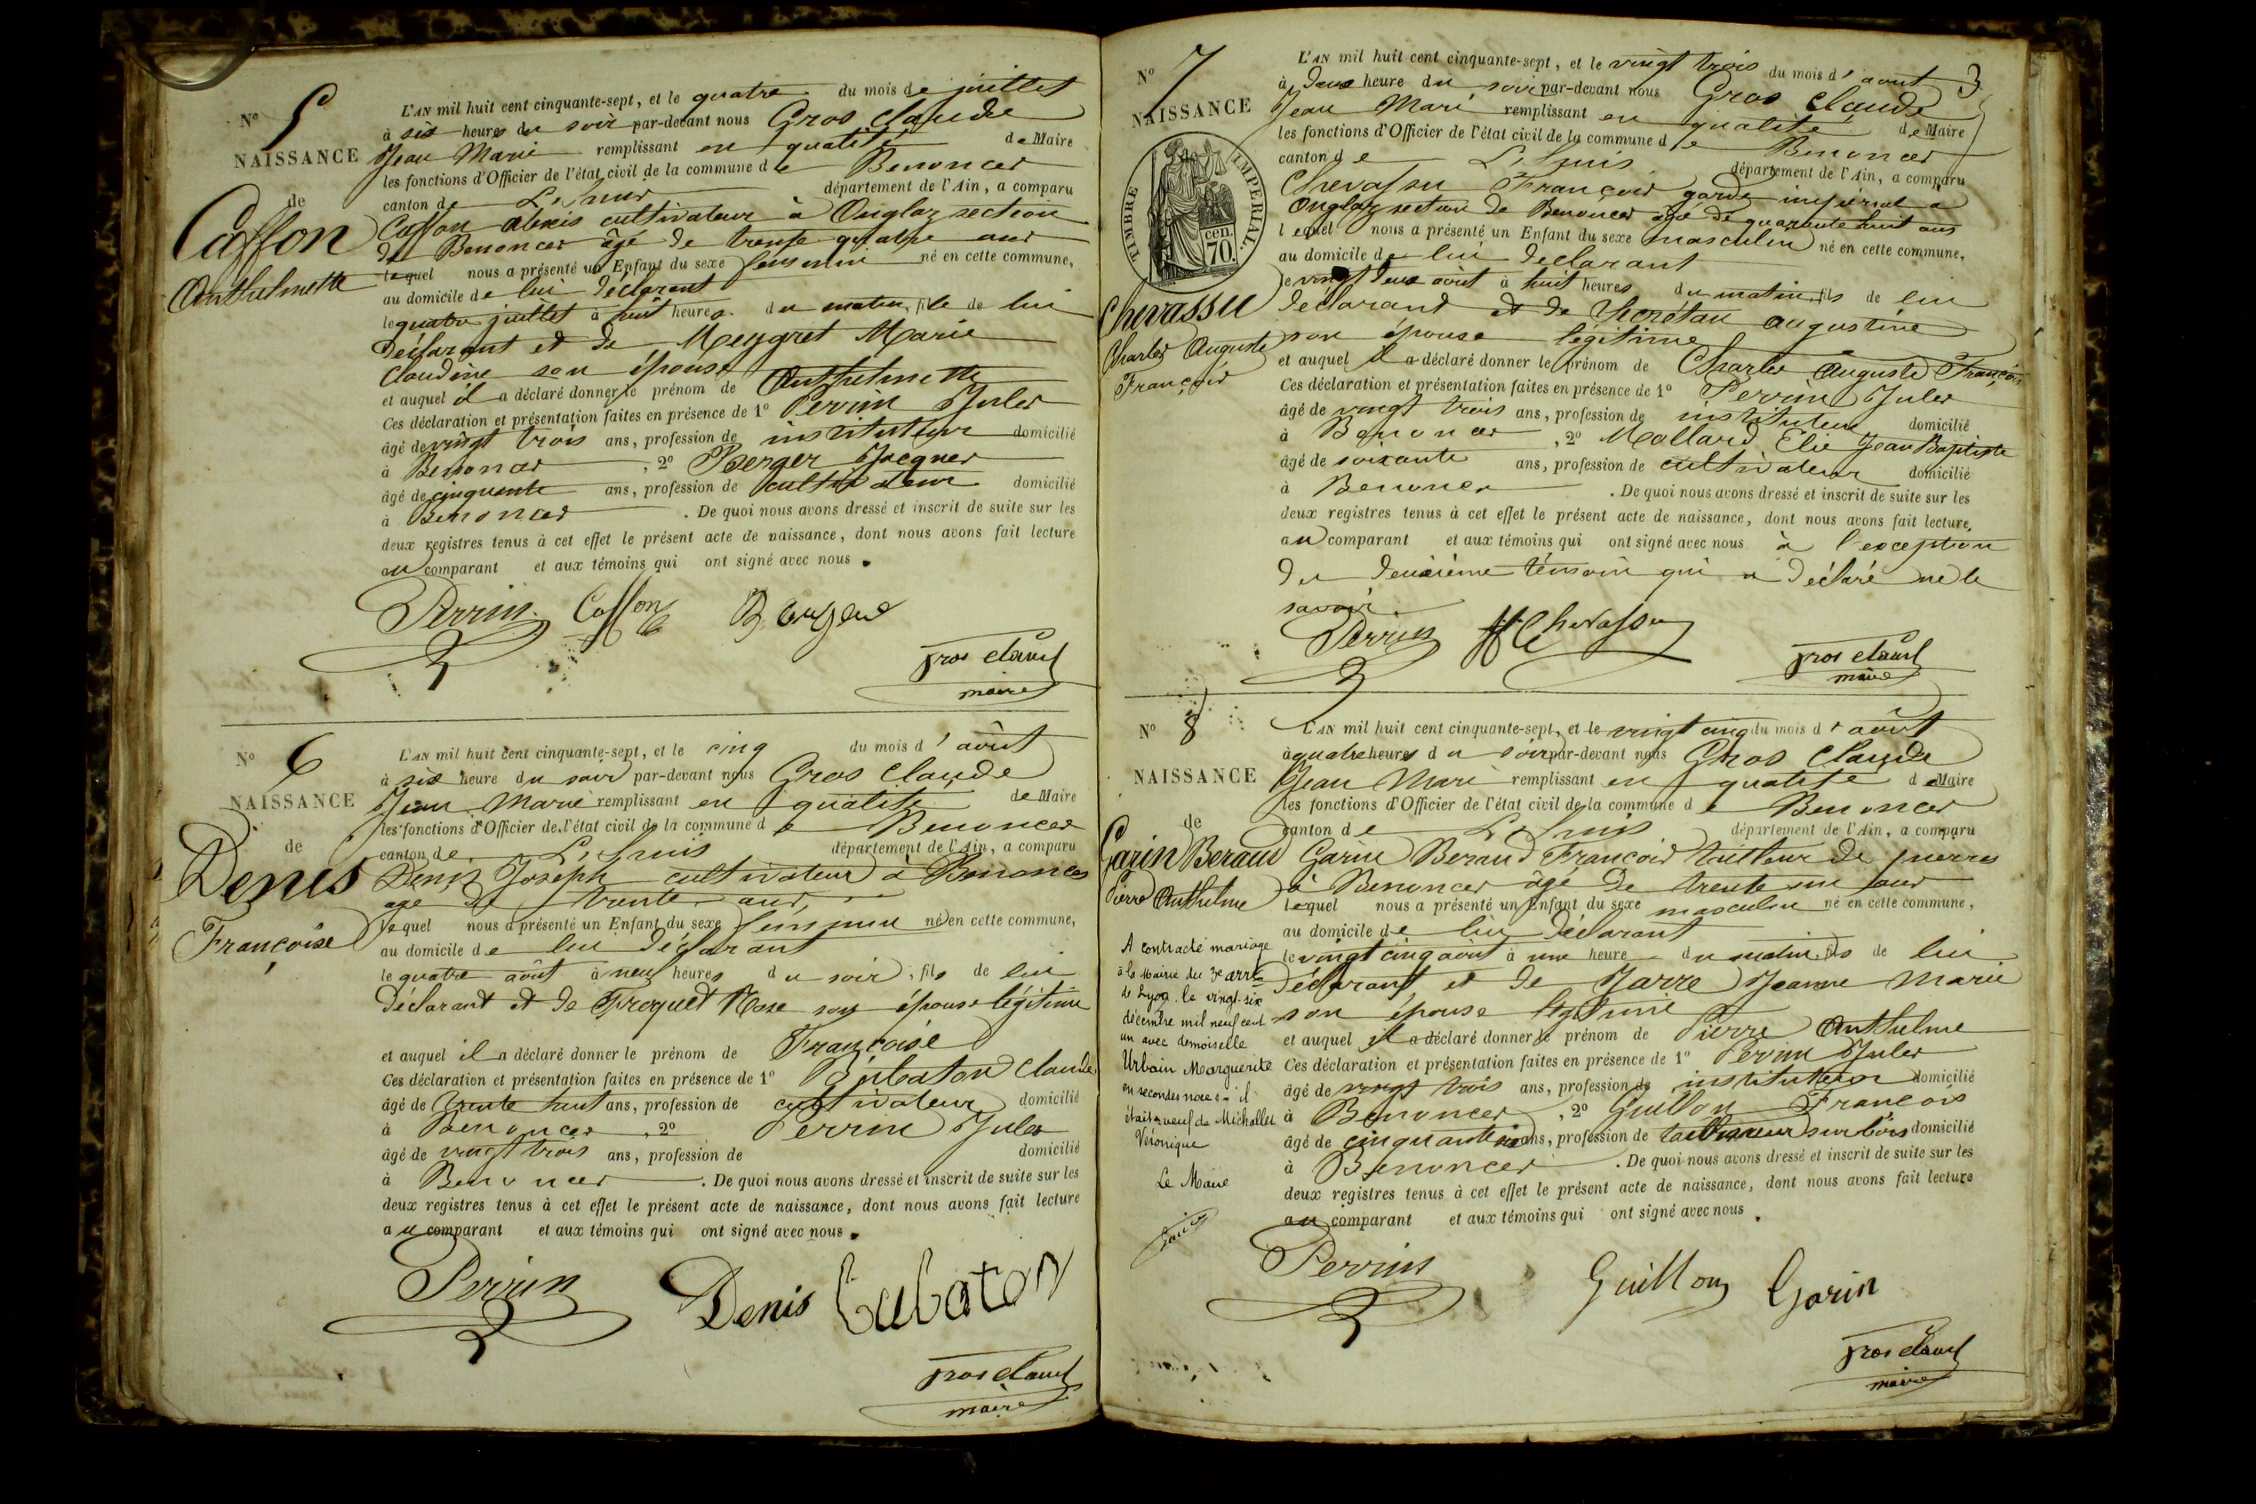 N° 5
NAISSANCE
de
Caffon
Anthelmette
L'AN mil huit cent cinquante-sept, et le quatre du mois de juillet
à six heures du soir par-devant nous Gros Claude
Jean Marie remplissant en qualité de Maire
les fonctions d'Officier de l'état civil de la commune de Benonces
canton de L'huis département de l'Ain, a comparu
Caffon alexis cultivateur à Onglaz section
de Benonces âgé de trente quatre ans
lequel nous a présenté un Enfant du sexe féminin né en cette commune,
au domicile de lui déclarant
le quatre juillet à huit heures du matin, fille de lui
déclarant et de Meygret Marie
Claudine son épouse
et auquel il a déclaré donner le prénom de Anthelmette
Ces déclaration et présentation faites en présence de 1° Perrin Jules
âgé de vingt trois ans, profession de instituteur domicilié
à Benonces, 2° Berger Jacques
âgé de cinquante ans, profession de cultivateur domicilié
à Benonces. De quoi nous avons dressé et inscrit de suite sur les
deux registres tenus à cet effet le présent acte de naissance, dont nous avons fait lecture
au comparant et aux témoins qui ont signé avec nous.
Perrin Caffon Berger
gros claud
maire
N° 6
NAISSANCE
de
Denis
Françoise
L'AN mil huit cent cinquante-sept, et le cinq du mois d'août
à six heure du soir par-devant nous Gros Claude
Jean Marie remplissant en qualité de Maire
les fonctions d'Officier de l'état civil de la commune de Benonces
canton de L'huis département de l'Ain, a comparu
Denis Joseph cultivateur à Benonces
age de trente ans,
lequel nous a présenté un Enfant du sexe féminin né en cette commune,
au domicile de lui déclarant
le quatre août à neuf heures du soir, fils de lui
déclarant et de Froquet Rose son épouse légitime
et auquel il a déclaré donner le prénom de Françoise
Ces déclaration et présentation faites en présence de 1° Cubaton Claude
âgé de trente huit ans, profession de cultivateur domicilié
à Benonces, 2° Perrin Jules
âgé de vingt trois ans, profession de domicilié
à Benonces. De quoi nous avons dressé et inscrit de suite sur les
deux registres tenus à cet effet le présent acte de naissance, dont nous avons fait lecture
au comparant et aux témoins qui ont signé avec nous.
Perrin Denis Cubaton
gros claud
maire
3
N° 7
NAISSANCE
TIMBRE IMPERIAL.
70 cen.
Chevassu
Charles Auguste
François
L'AN mil huit cent cinquante-sept, et le vingt trois du mois d'aout
à deux heure du soir par-devant nous Gros Claude
Jean Mari remplissant en qualité de Maire
les fonctions d'Officier de l'état civil de la commune de Benonces
canton de L'huis département de l'Ain, a comparu
Chevassu François garde impérial a
Onglaz section de Benonces âgé de quarante huit ans
lequel nous a présenté un Enfant du sexe masculin né en cette commune,
au domicile de lui déclarant
le vingt deux août à huit heures du matin, fils de lui
déclarant et de Thorétau augustine
son épouse légitime
et auquel il a déclaré donner le prénom de Charles Auguste François
Ces déclaration et présentation faites en présence de 1° Perrin Jules
âgé de vingt trois ans, profession de instituteur domicilié
à Benonces, 2° Mollard Elie Jean Baptiste
âgé de soixante ans, profession de cultivateur domicilié
à Benonces. De quoi nous avons dressé et inscrit de suite sur les
deux registres tenus à cet effet le présent acte de naissance, dont nous avons fait lecture,
au comparant et aux témoins qui ont signé avec nous à l'exception
du deuxième témoin qui a déclaré ne le
savoir
Perrin Chevassu
gros claud
maire
N° 8
NAISSANCE
de
Garin Beraud
Pierre Anthelme
A contracté mariage
à la Mairie du 3e arrt
de Lyon le vingt-six
décembre mil neuf cent
un avec demoiselle
Urbain Marguerite
en secondes noces - il
était veuf de Michallet
Véronique
Le Maire
L'AN mil huit cent cinquante-sept, et le vingt cinq du mois d'août
à quatre heures du soir par-devant nous Gros Claude
Jean Mari remplissant en qualité de Maire
les fonctions d'Officier de l'état civil de la commune de Benonces
canton de L'huis département de l'Ain, a comparu
Garin Beraud François tailleur de pierres
à Benonces âgé de trente un ans
lequel nous a présenté un Enfant du sexe masculin né en cette commune,
au domicile de lui déclarant
le vingt cinq août à une heure du matin, fils de lui
déclarant et de Jarre Jeanne Marie
son épouse légitime
et auquel il a déclaré donner le prénom de Pierre Anthelme
Ces déclaration et présentation faites en présence de 1° Perrin Jules
âgé de vingt trois ans, profession de instituteur domicilié
à Benonces, 2° Guillon François
âgé de cinquante six ans, profession de sur bois domicilié
à Benonces. De quoi nous avons dressé et inscrit de suite sur les
deux registres tenus à cet effet le présent acte de naissance, dont nous avons fait lecture
au comparant et aux témoins qui ont signé avec nous.
Perrin Guillon Garin
gros claud
maire